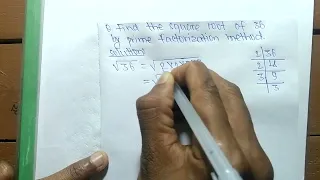 Q Find the square root of 36
by prime factorization method.
Solution
√36 = √2×
= √
2 | 36
2 | 18
3 | 9
3